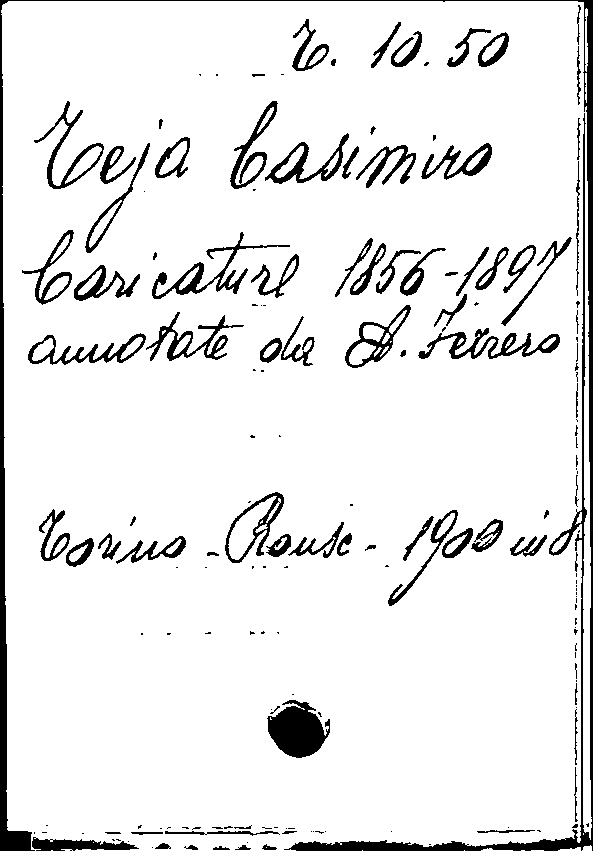 T. 10.50
Teja Casimiro
Caricature 1856-1897
annotate da A. Ferrero
Torino - Roux - 1900 in 8